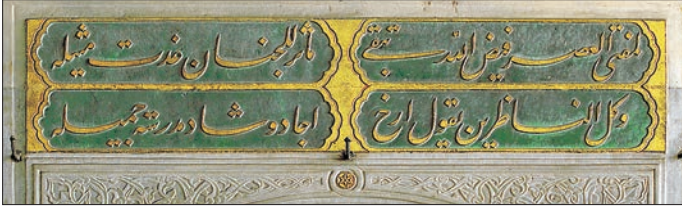 لمفتى العصر فيض الله تبقى مآثر للجنان غدت مثيله
وكل الناظرين يقول ارخ اجاد وشاد مدرسة جميله